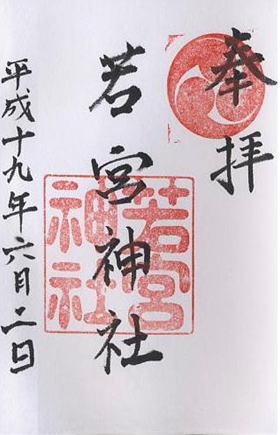 奉拝
若宮神社
若宮神社
平成十九年六月二日